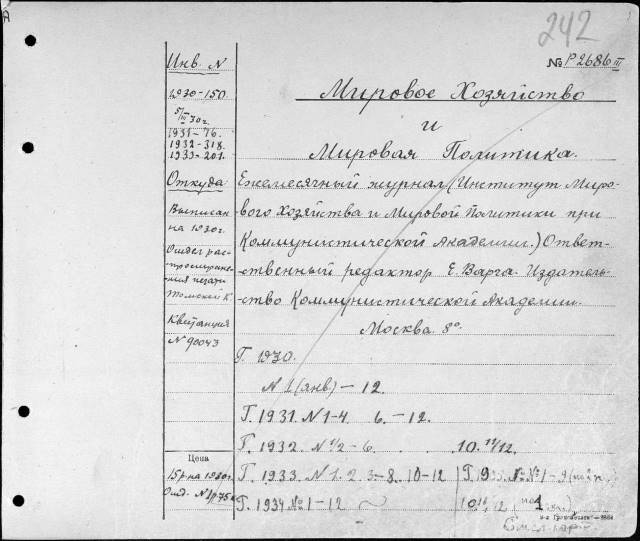 242
№ Р2686 III
Инв. N
1930-150.
5/III 30г.
1931-76.
1932-318.
1933-201.
Откуда
Выписан
на 1930г.
Отдел рас-
простране-
ния печати
Томский К.
Квитанция
N 90043
Цена
15р на 1930г.
Отд. N 1р75к
Мировое Хозяйство
и
Мировая Политика.
Ежемесячный журнал (Институт Миро-
вого Хозяйства и Мировой Политики при
Коммунистической Академии.) Ответ-
ственный редактор Е. Варга. Издатель-
ство Коммунистической Академии.
Москва 8°.
Г. 1930.
N 1 (янв) – 12.
Г. 1931. N 1-4. 6. – 12.
Г. 1932. N 1/2 – 6. 10. 11/12.
Г. 1933. N 1. 2. 3-8. 10-12
Г. 1934 № 1 – 12
Г. 193 № 1-9
10 11/12